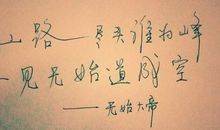 山路尽头谁为峰
一见无始道成空
——无始大帝